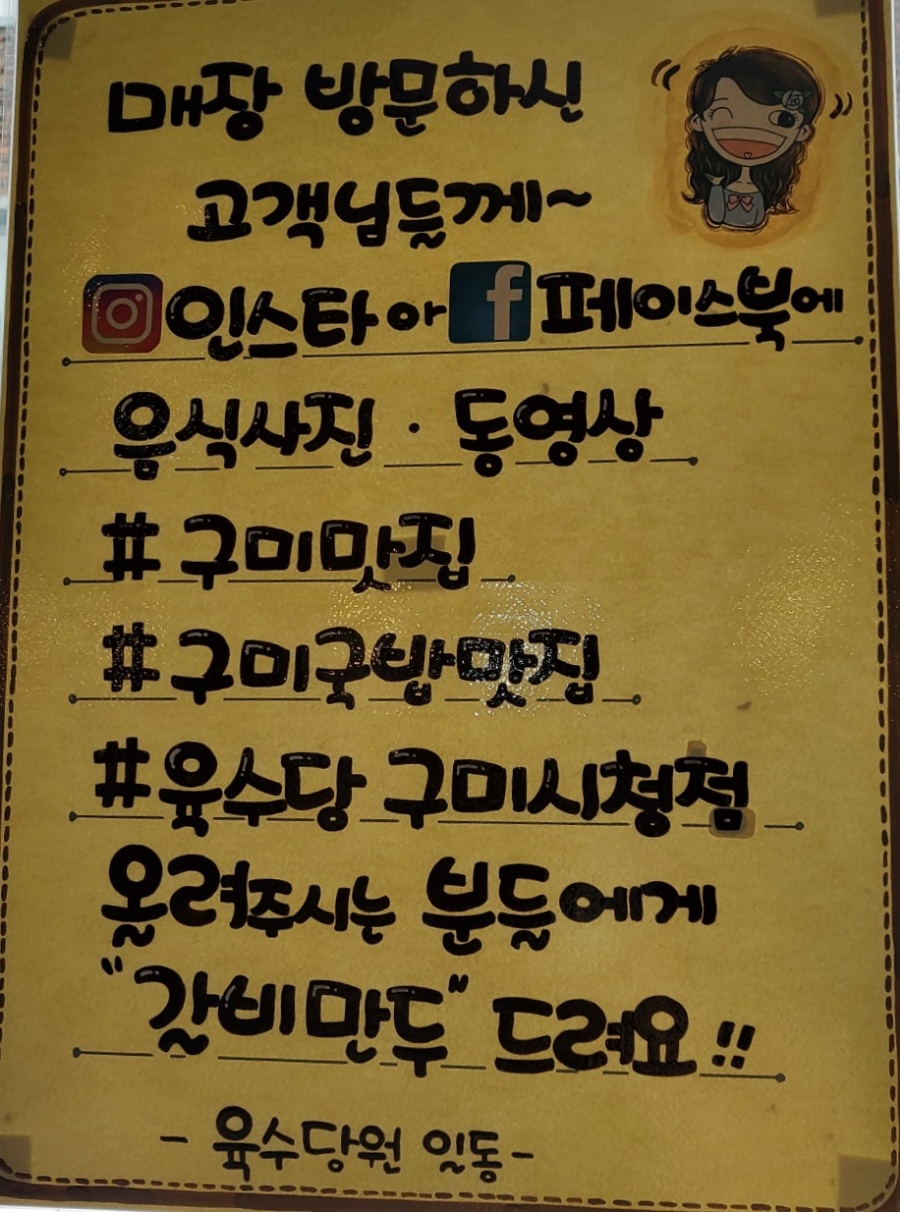 매장 방문하신
고객님들께~
인스타 아 f 페이스북에
음식사진 · 동영상
# 구미맛집
# 구미국밥맛집
#육수당 구미시청점
올려주시는 분들에게
"갈비만두" 드려요!!
- 육수당원 일동-